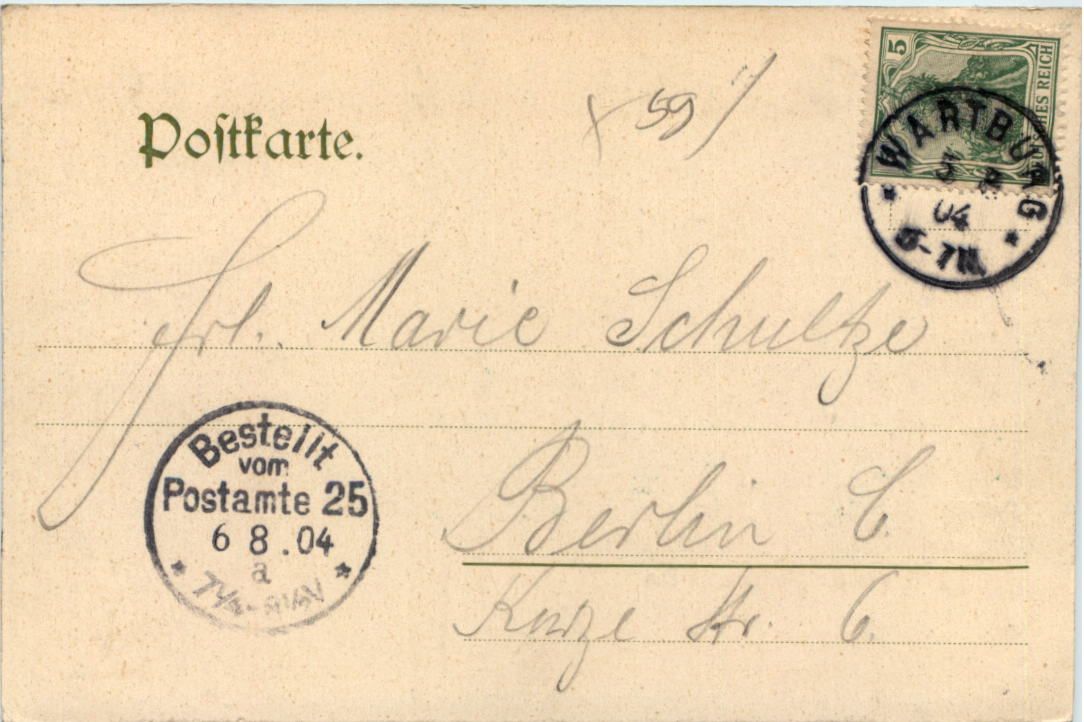 Postkarte.
59
5
DEUTSCHES REICH
WARTBURG
04
5-7N
Frl. Marie Schultze
Bestellt
vom
Postamte 25
6 8.04
a
Berlin C.
Kurze Str. 6.